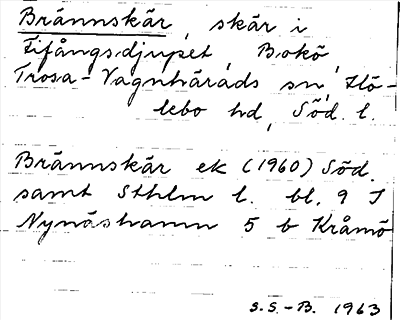 Brännskär, skär i
Fifångsdjupet, Bokö,
Trosa-Vagnhärads sn, Hö-
lebo hd, Söd. l.
Brännskär ek (1960) Söd.
samt Sthlm l. bl. 9 I
Nynäshamn 5 b Kråmö
S.S.-B. 1963